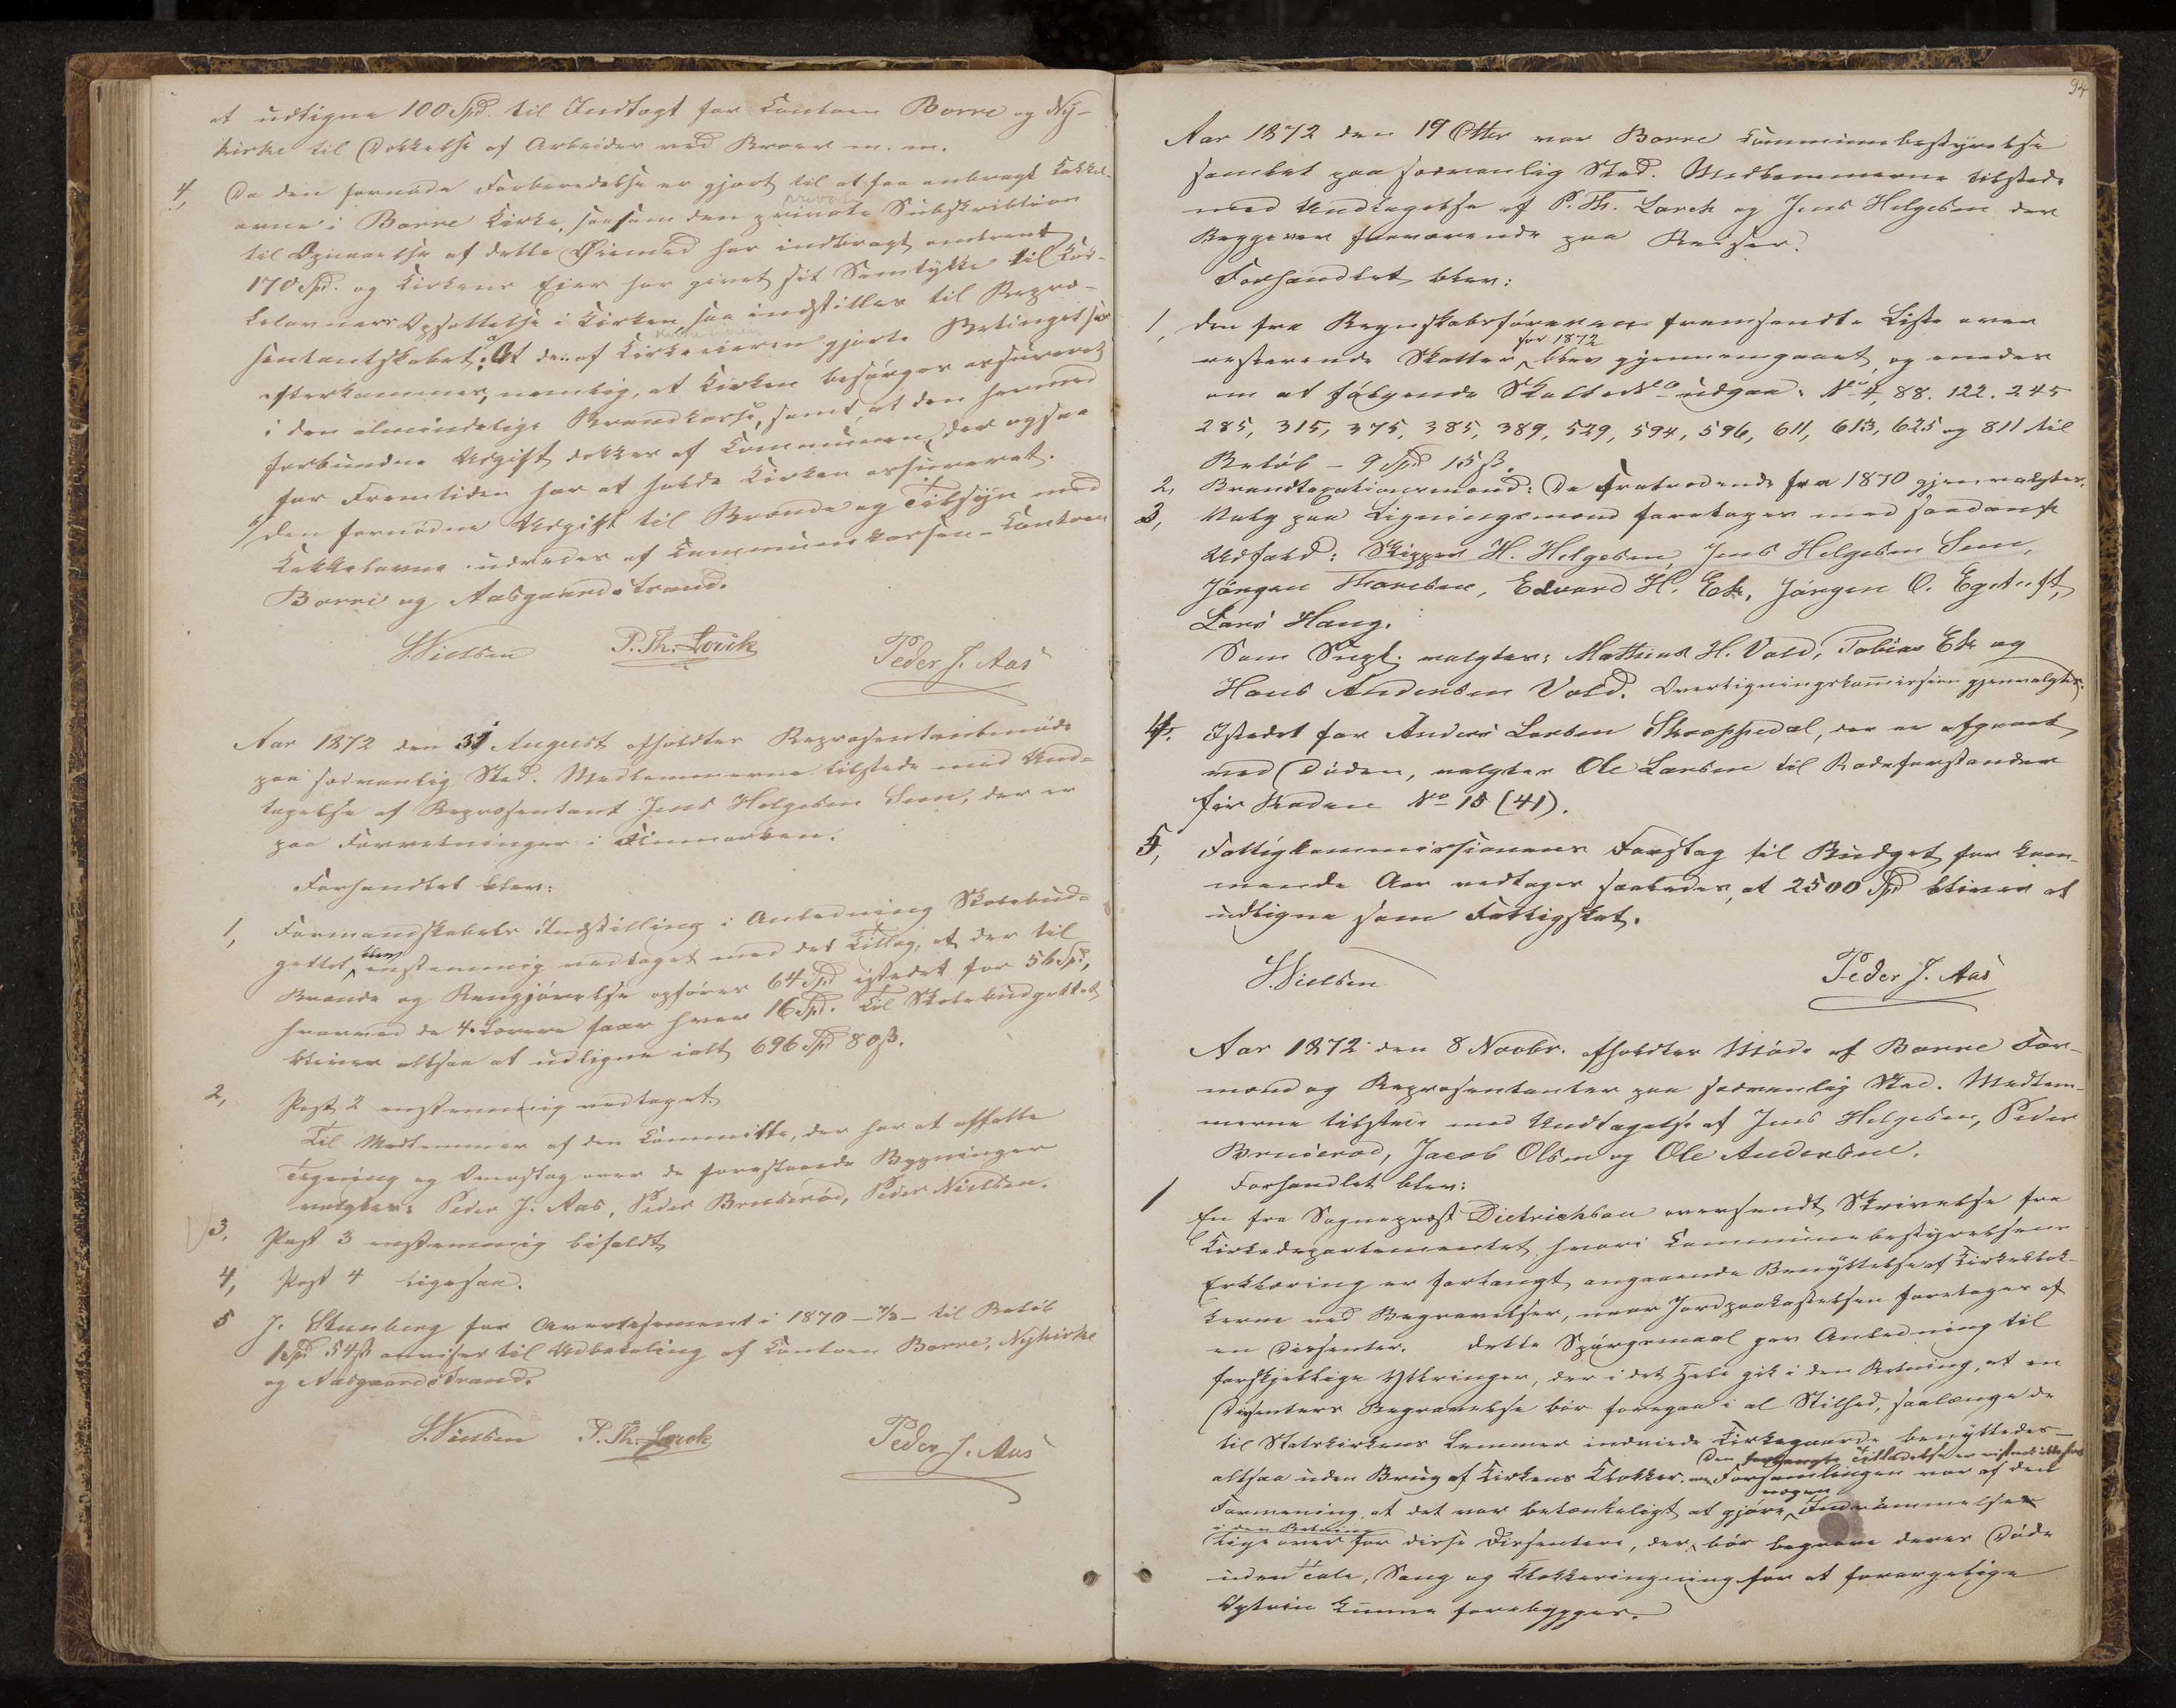 at udligne 100 Spd. til Indtægt for Contoen Borre og Ny-
kirke til Dækkelse af Arbeider ved Broer m. m.
4, Da den fornødne Forberedelse er gjort til at faa anbragt Kakkel-
private
ovne i Borre Kirke, saasom den private Subskribtion
til Opnaaelse af dette Øiemed har indbragt omtrent
170 Spd. og Kirkens Eier har givet sit Samtykke til Kak-
kelovners Opsættelse i Kirken saa indstilles til Repræ-
sentantskabet: a/ At den af Kirkeeieren gjorte Betingelser
efterkommes, nemlig, at Kirken besørges assureret
i den almindelige Brandkasse, samt, at den hermed
forbundne Udgift dækkes af Communen, der ogsaa
for Fremtiden har at holde Kirken assureret.
b/ Den fornødne Udgift til Brænde og Tilsyn med
Kakkelovne udredes af Communekassen - Contoen
Borre og Aasgaardstrand.
S. Nielsen P. Th. Lorck Peder J. Aas
Aar 1872 den 31 August afholdtes Repræsentantmøde
paa sædvanlig Sted. Medlemmerne tilstede med Und-
tagelse af Repræsentant Jens Helgesen Seen, der er
paa Forretninger i Finmarken.
Forhandlet blev:
1, Formandskabets Indstilling i Anledning Skolebud-
gettet blev enstemmig vedtaget med det Tillæg, at der til
Brænde og Rengjørelse opføres 64 Spd istedet for 56 Spd,
hvorved de 4 Lærere faar hver 16 Spd. Til Skolebudgettet
bliver altsaa at udligne ialt 696 Spd 80 ß.
2, Post 2 enstemmig vedtaget.
Til Medlemmer af den Committe, der har at affatte
Tegning og Overslag over de forestaaende Bygninger
valgtes: Peder J. Aas, Peder Bruserød, Peder Nielsen.
3, Post 3 enstemmig bifaldt
4, Post 4 ligesaa.
5 J. Stenberg for Avertisement i 1870 til Beløb
1 Spd 54 ß anvises til Udbetaling af Contoen Borre, Nykirke
og Aasgaardstrand.
S. Nielsen P. Th. Lorck Peder J. Aas
94
Aar 1872 den 19 Otbr var Borre Communebestyrelse
samlet paa sædvanlig Sted. Medlemmerne tilstede
med Undtagelse af P. Th. Lorck og Jens Helgesen der
Begge var fraværende paa Reiser.
Forhandlet blev:
1, Den fra Regnskabsføreren fremsendte Liste over
for 1872
resterende Skatter blev gjennemgaaet, og enedes
om at følgende Skatter udgaa: No 4, 88. 122. 245
285, 315, 375, 385, 389, 529, 594, 596, 611, 613, 625 og 811 til
Beløb - 9 Spd 15 ß.
2, Brandtaxationsmænd: De fratrædende fra 1870 gjenvalgtes.
3, Valg paa Ligningsmænd foretages med saadant
Udfald: Skipper H. Helgesen, Jens Helgesen Seen,
Jørgen Thoresen, Edvard H. Ek, Jørgen O. Egetuft,
Lars Haug.
Som Supl. valgtes: Mathias H. Vold, Tobias Ek og
Hans Andersen Vold. Overligningskommission gjenvalgtes.
4. Istedet for Anders Larsen Skroppedal, der er afgaaet
ved Døden, valgtes Ole Larsen til Rodeforstander
for Roden No 15 (41).
5, Fattigkommissionens Forslag til Budget for kom-
mende Aar vedtages saaledes, at 2500 Spd bliver at
udligne som Fattigskat.
S. Nielsen Peder J. Aas
Aar 1872 den 8 Novbr. afholdtes Møde af Borre For-
mænd og Repræsentanter paa sædvanlig Sted. Medlem-
merne tilstede med Undtagelse af Jens Helgesen, Peder
Bruserød, Jacob Olsen og Ole Andersen.
Forhandlet blev:
1 En fra Sogneprest Dietrichson oversendt Skrivelse fra
Kirkedepartementet, hvori Communebestyrelsens
Erklæring er forlangt, angaaende Benyttelse af Kirkeklok-
kerne ved Begravelser, naar Jordpaakastelsen foretages af
en Dissenter. Dette Spørgsmaal gav Anledning til
forskjellige Yttringer, der i det Hele gik i den Retning, at en
Dissenters Begravelse bør foregaa i al Stilhed, saalænge de
til Statskirkens Lemmer indviede Kirkegaarde benyttedes -
Den forlangte Tilladelse er
altsaa uden Brug af Kirkens Klokker. Forsamlingen var af den
nogen
Formening, at det var betænkeligt at gjøre Indrømmelser
i den Retning
lige over for disse Dissentere, der bør begrave deres Døde
uden Tale, Sang og Klokkeringning for at forargelige
Optrin kunne forebygges.